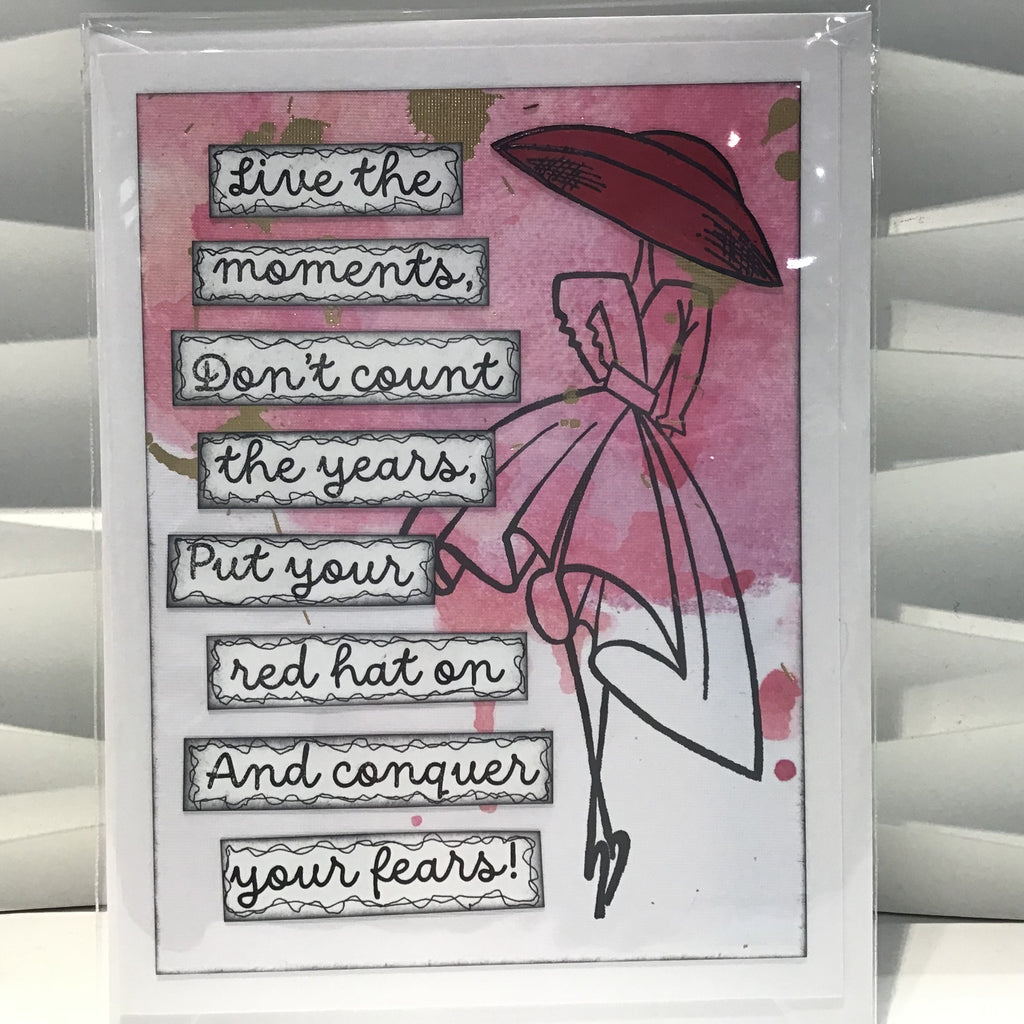 Live the
moments,
Don't count
the years,
Put your
red hat on
And conquer
your fears!